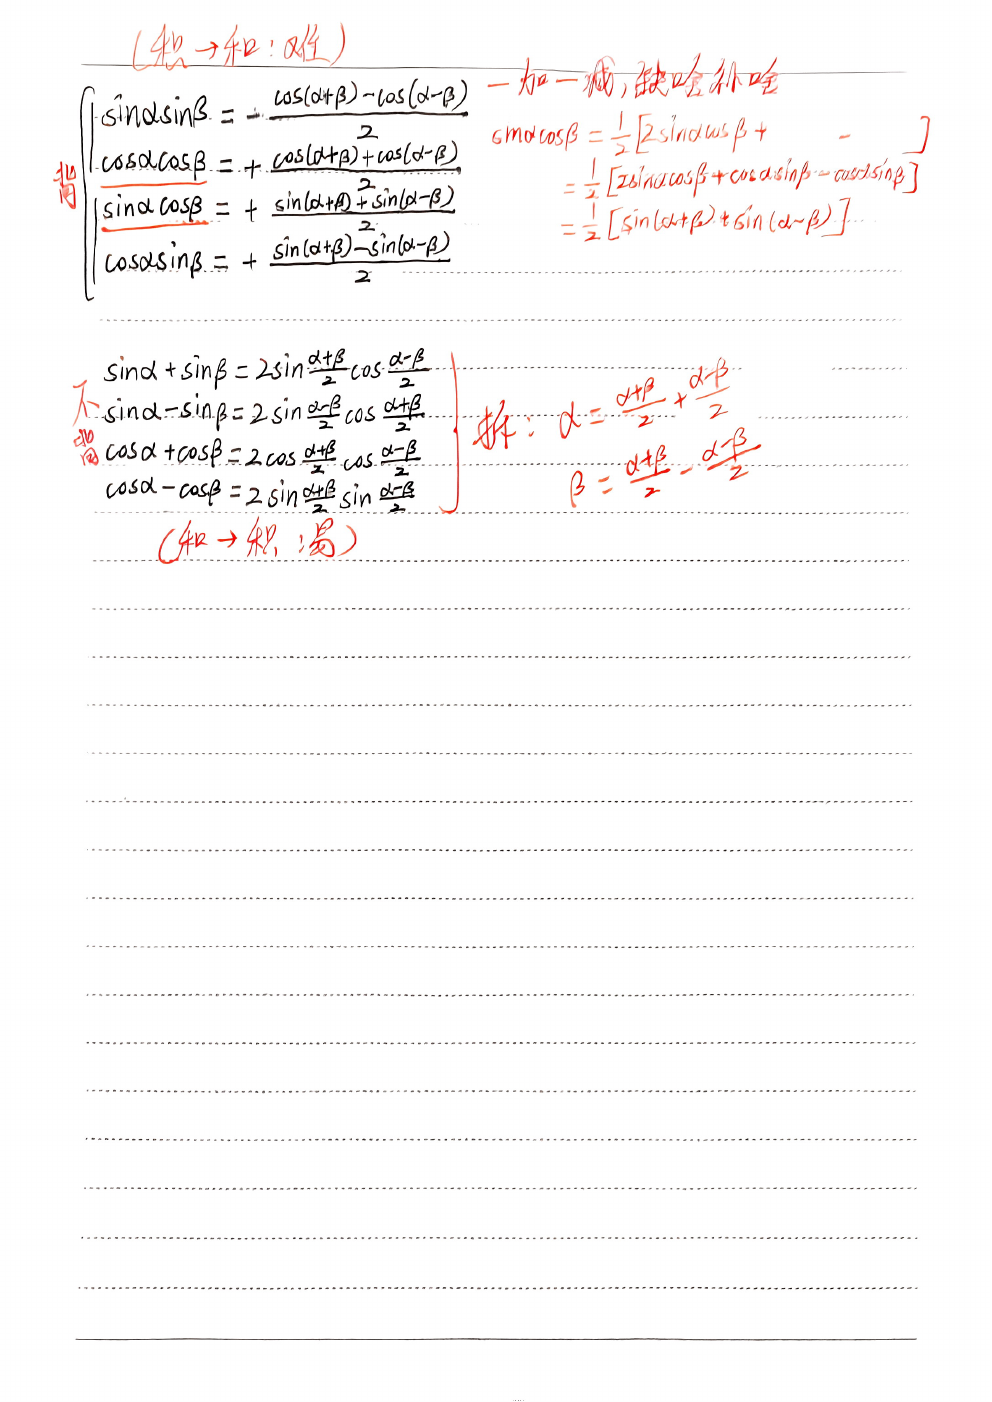 (积→和:难)
一加一减,缺啥补啥
sinαsinβ = - (cos(α+β)-cos(α-β))/2
cosαcosβ = + (cos(α+β)+cos(α-β))/2
sinαcosβ = + (sin(α+β)+sin(α-β))/2
cosαsinβ = + (sin(α+β)-sin(α-β))/2
sinαcosβ = 1/2 [2sinαcosβ + - ]
= 1/2 [2sinαcosβ + cosαsinβ - cosαsinβ]
= 1/2 [sin(α+β) + sin(α-β)]
不
sinα + sinβ = 2sin (α+β)/2 cos (α-β)/2
sinα - sinβ = 2 sin (α-β)/2 cos (α+β)/2
cosα + cosβ = 2 cos (α+β)/2 cos (α-β)/2
cosα - cosβ = 2 sin (α+β)/2 sin (α-β)/2
拆: α = (α+β)/2 + (α-β)/2
β = (α+β)/2 - (α-β)/2
(和→积:易)